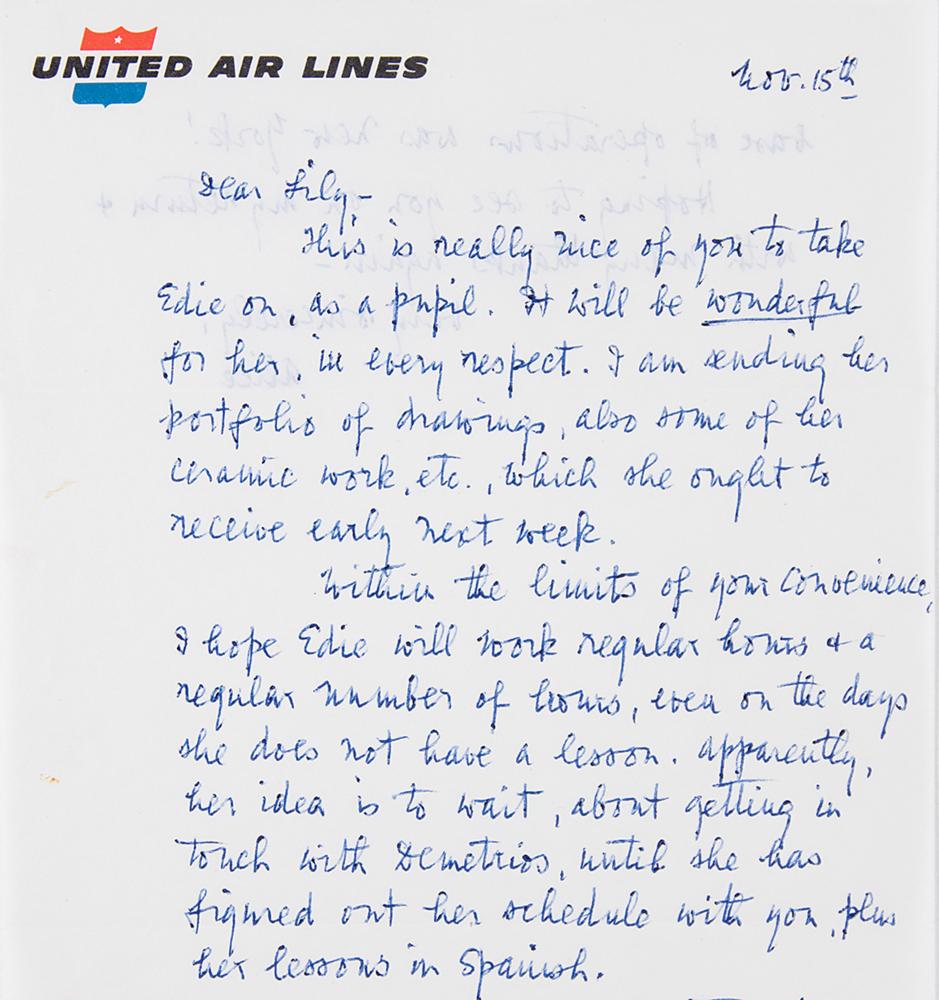 UNITED AIR LINES
Nov. 15th
Dear Lily-
This is really nice of you to take
Edie on, as a pupil. It will be wonderful
for her, in every respect. I am sending her
portfolio of drawings, also some of her
ceramic work, etc., which she ought to
receive early next week.
Within the limits of your convenience,
I hope Edie will work regular hours & a
regular number of hours, even on the days
she does not have a lesson. Apparently,
her idea is to wait, about getting in
touch with Demetrios, until she has
figured out her schedule with you, plus
her lessons in Spanish.
base of operations was New York!
Hoping to see you on my return &
with many thanks again -
Sincerely,
Alice